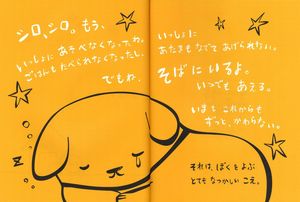 シロ、シロ。もう、
いっしょに あそべなくなったね。
ごはんも たべられなくなったし、
でもね、
いっしょに
あたまも なでて あげられない。
そばに いるよ。
いつでも あえる。
いまも これからも
ずっと、かわらない。
それは、ぼくを よぶ
とても なつかしい こえ。